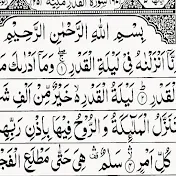 سورة القدر مكية
بسم الله الرحمن الرحيم
نا انزلنه فى ليلة القدر وما ادرىك ما
القدر ليلة القدر خير من الف ش
تنزل الملئكة و الروح فيها باذن ربهم
كل امر سلم هى حتى مطلع الفجر